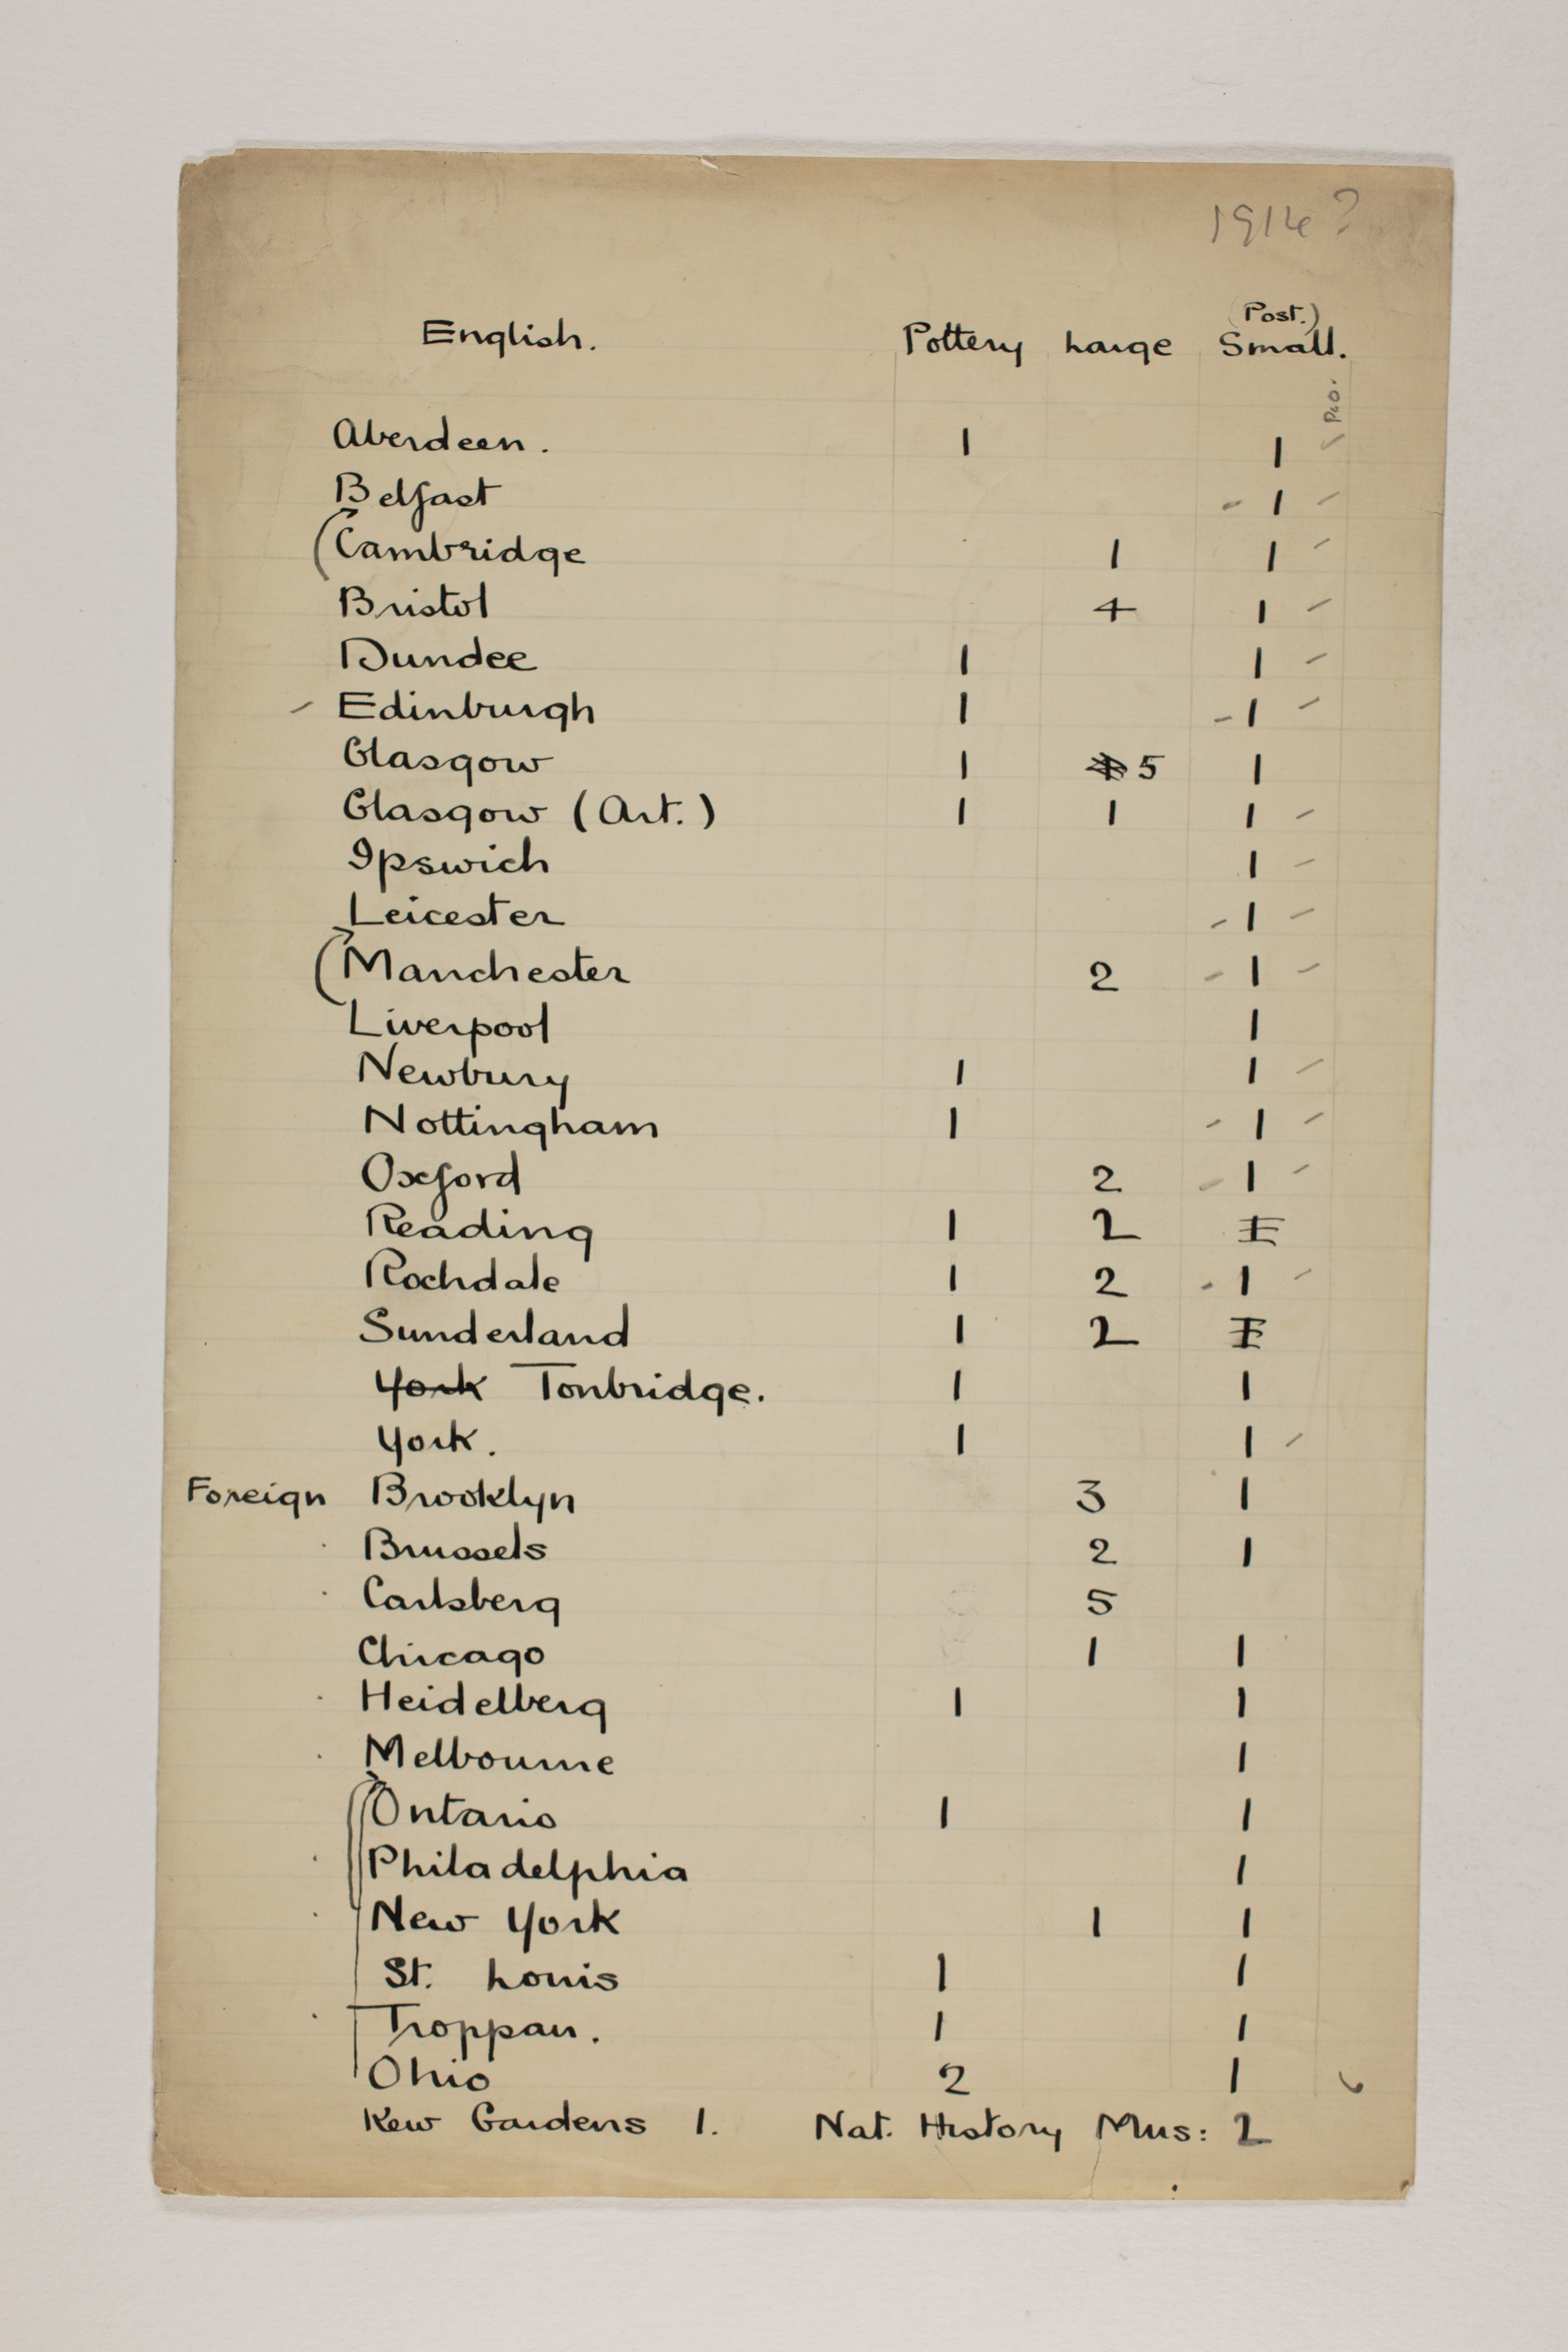 1914?
(Post.)
English. Pottery Large Small.
Pro.
Aberdeen. 1 1
Belfast - 1
Cambridge 1 1
Bristol 4 1
Dundee 1 1
Edinburgh 1 - 1
Glasgow 1 5 1
Glasgow (Art.) 1 1 1
Ipswich 1
Leicester - 1
Manchester 2 - 1
Liverpool 1
Newbury 1 1
Nottingham 1 - 1
Oxford 2 - 1
Reading 1 2 1
Rochdale 1 2 - 1
Sunderland 1 2 1
York Tonbridge. 1 1
York. 1 1
Foreign Brooklyn 3 1
Brussels 2 1
Carlsberg 5
Chicago 1 1
Heidelberg 1 1
Melbourne 1
Ontario 1 1
Philadelphia 1
New York 1 1
St. Louis 1 1
Troppau. 1 1
Ohio 2 1
Kew Gardens 1. Nat. History Mus: 2